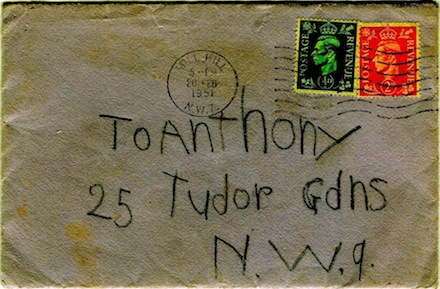 MILL HILL
20 FEB
1951
N.W.7
POSTAGE REVENUE
½D
POSTAGE REVENUE
2D
To Anthony
25 Tudor Gdns
N.W.9.